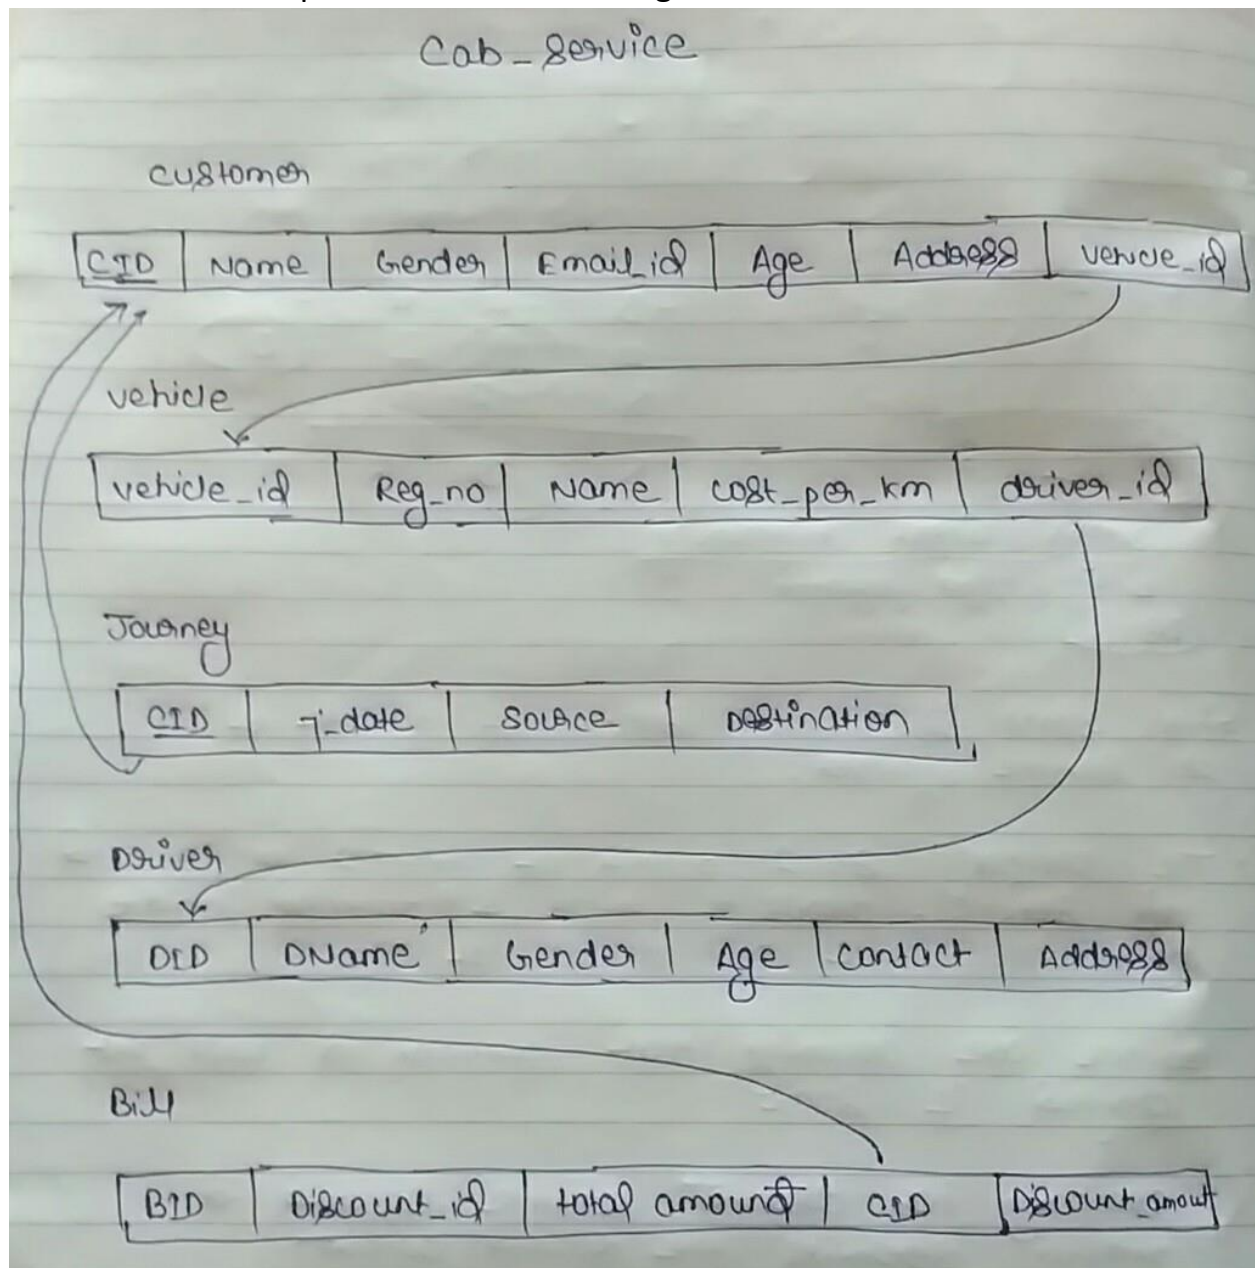 Cab_Service
Customer
CID Name Gender Email_id Age Address vehicle_id
vehicle
vehicle_id Reg_no Name cost_per_km driver_id
Journey
CID J_date Source Destination
Driver
DID DName Gender Age Contact Address
Bill
BID Discount_id total amount CID Discount_amout